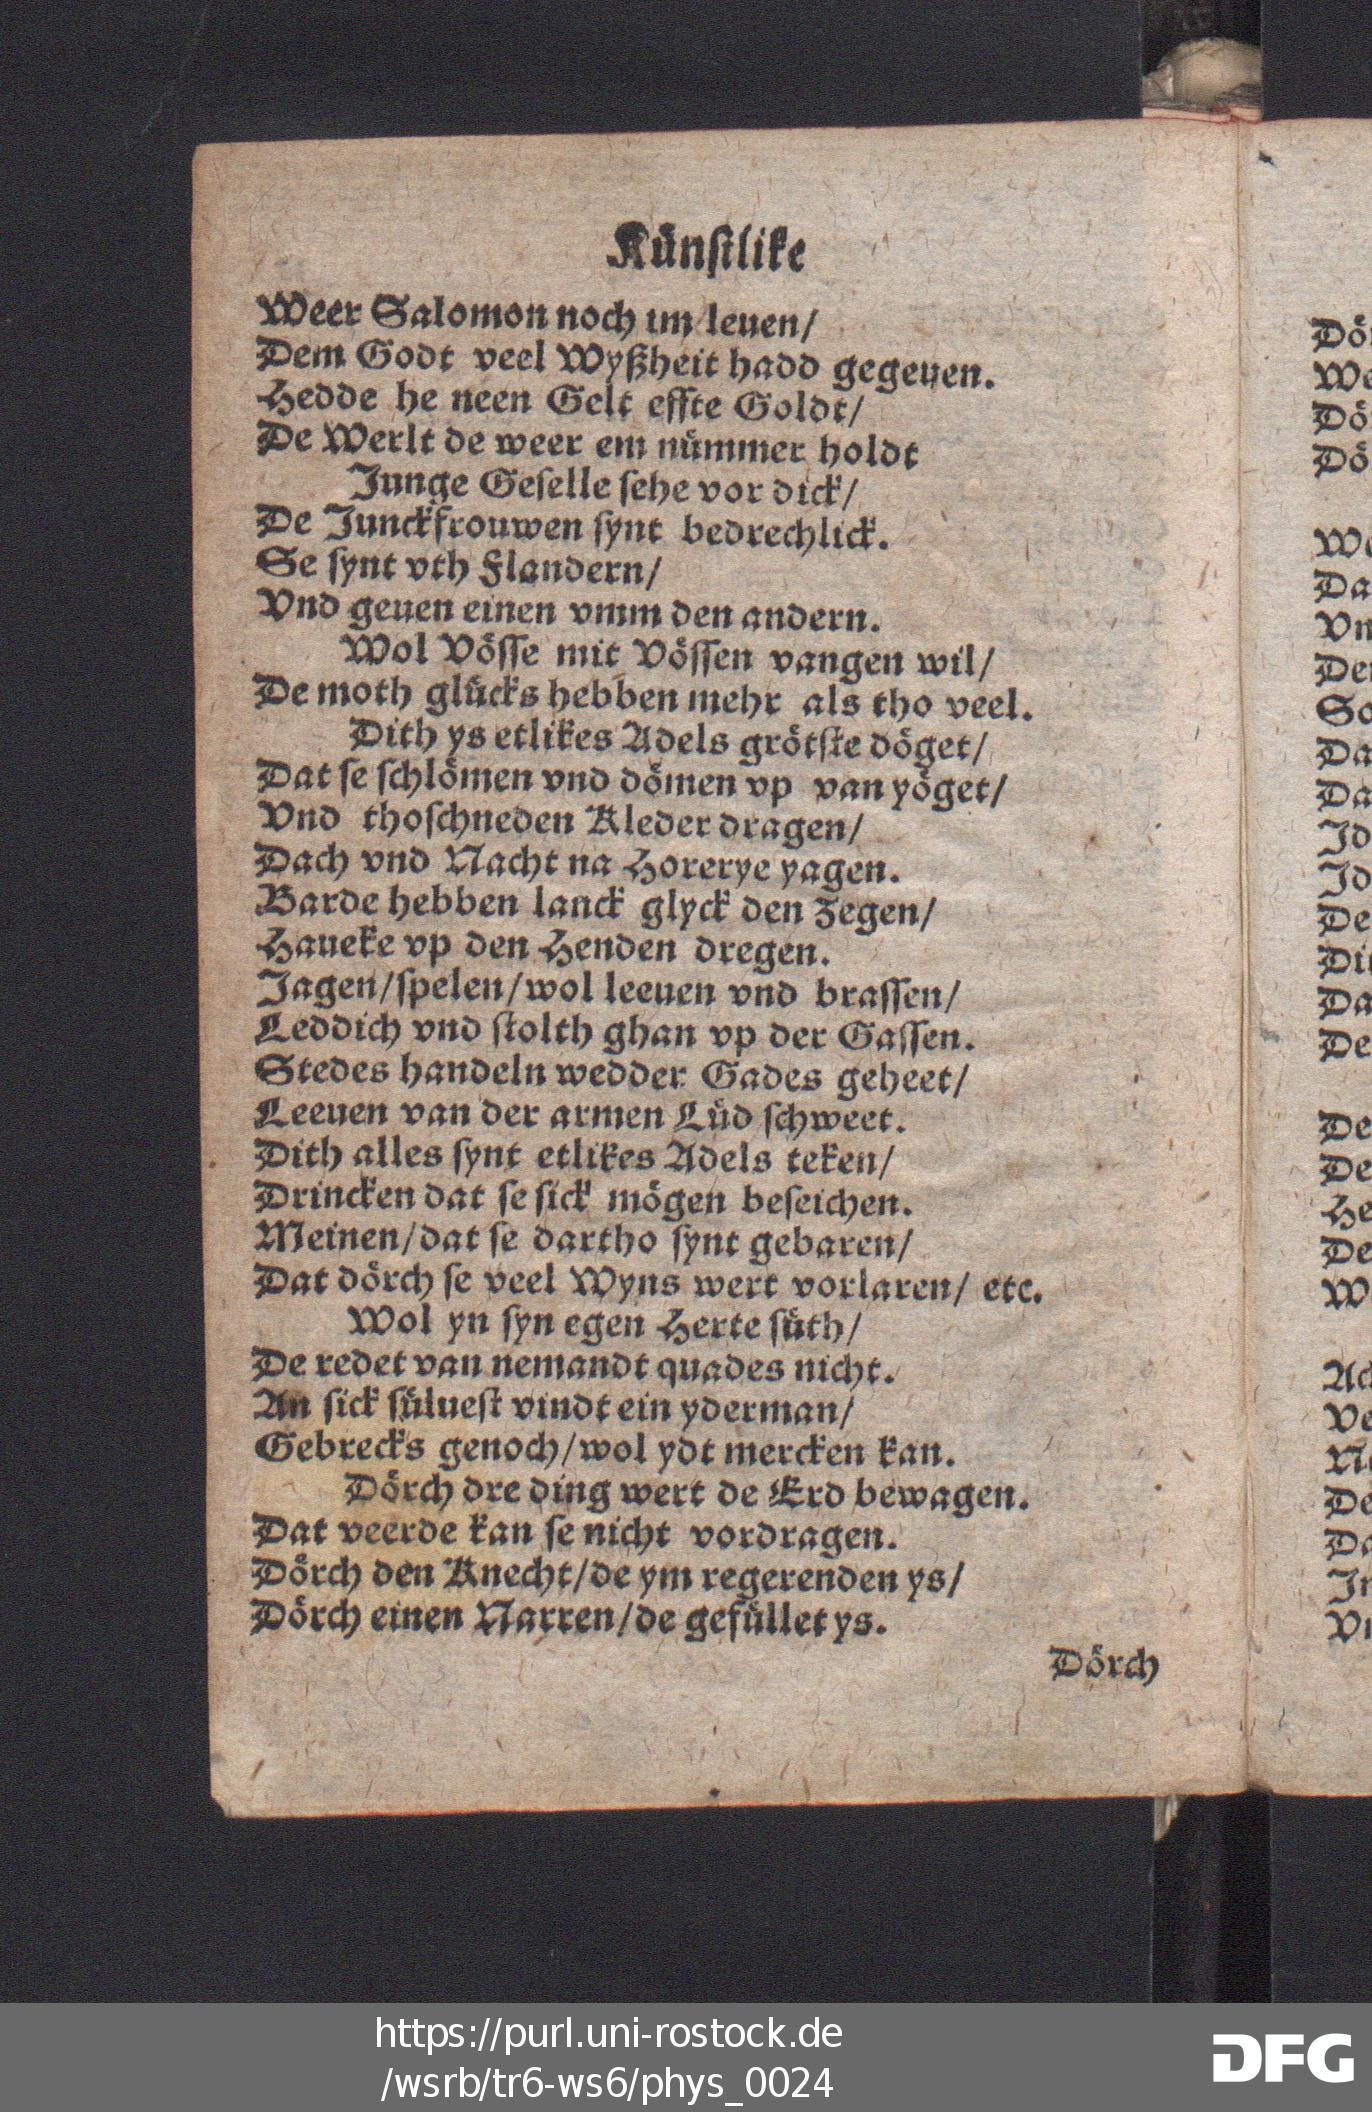 Künſtlike
Weer Salomon noch im leuen/
Dem Godt veel Wyßheit hadd gegeuen.
Hedde he neen Gelt effte Goldt/
De Werlt de weer em nümmer holdt
Junge Geſelle ſehe vor dick/
De Junckfrouwen ſynt bedrechlick.
Se ſynt vth Flandern/
Vnd geuen einen vmm den andern.
Wol Vöſſe mit Vöſſen vangen wil/
De moth glücks hebben mehr als tho veel.
Dith ys etlikes Adels grötſte döget/
Dat ſe ſchlömen vnd dömen vp van yöget/
Vnd thoſchneden Kleder dragen/
Dach vnd Nacht na Horerye yagen.
Barde hebben lanck glyck den Zegen/
Haueke vp den Henden dregen.
Jagen/ſpelen/wol leeuen vnd braſſen/
Leddich vnd ſtolth ghan vp der Gaſſen.
Stedes handeln wedder Gades geheet/
Leeuen van der armen Lüd ſchweet.
Dith alles ſynt etlikes Adels teken/
Drincken dat ſe ſick mögen beſeichen.
Meinen/dat ſe dartho ſynt gebaren/
Dat dörch ſe veel Wyns wert vorlaren/ etc.
Wol yn ſyn egen Herte ſüth/
De redet van nemandt quades nicht.
An ſick ſülueſt vindt ein yderman/
Gebrecks genoch/wol ydt mercken kan.
Dörch dre ding wert de Erd bewagen.
Dat veerde kan ſe nicht vordragen.
Dörch den Knecht/de ym regerenden ys/
Dörch einen Narren/de gefüllet ys.
Dörch
https://purl.uni-rostock.de
/wsrb/tr6-ws6/phys_0024
DFG